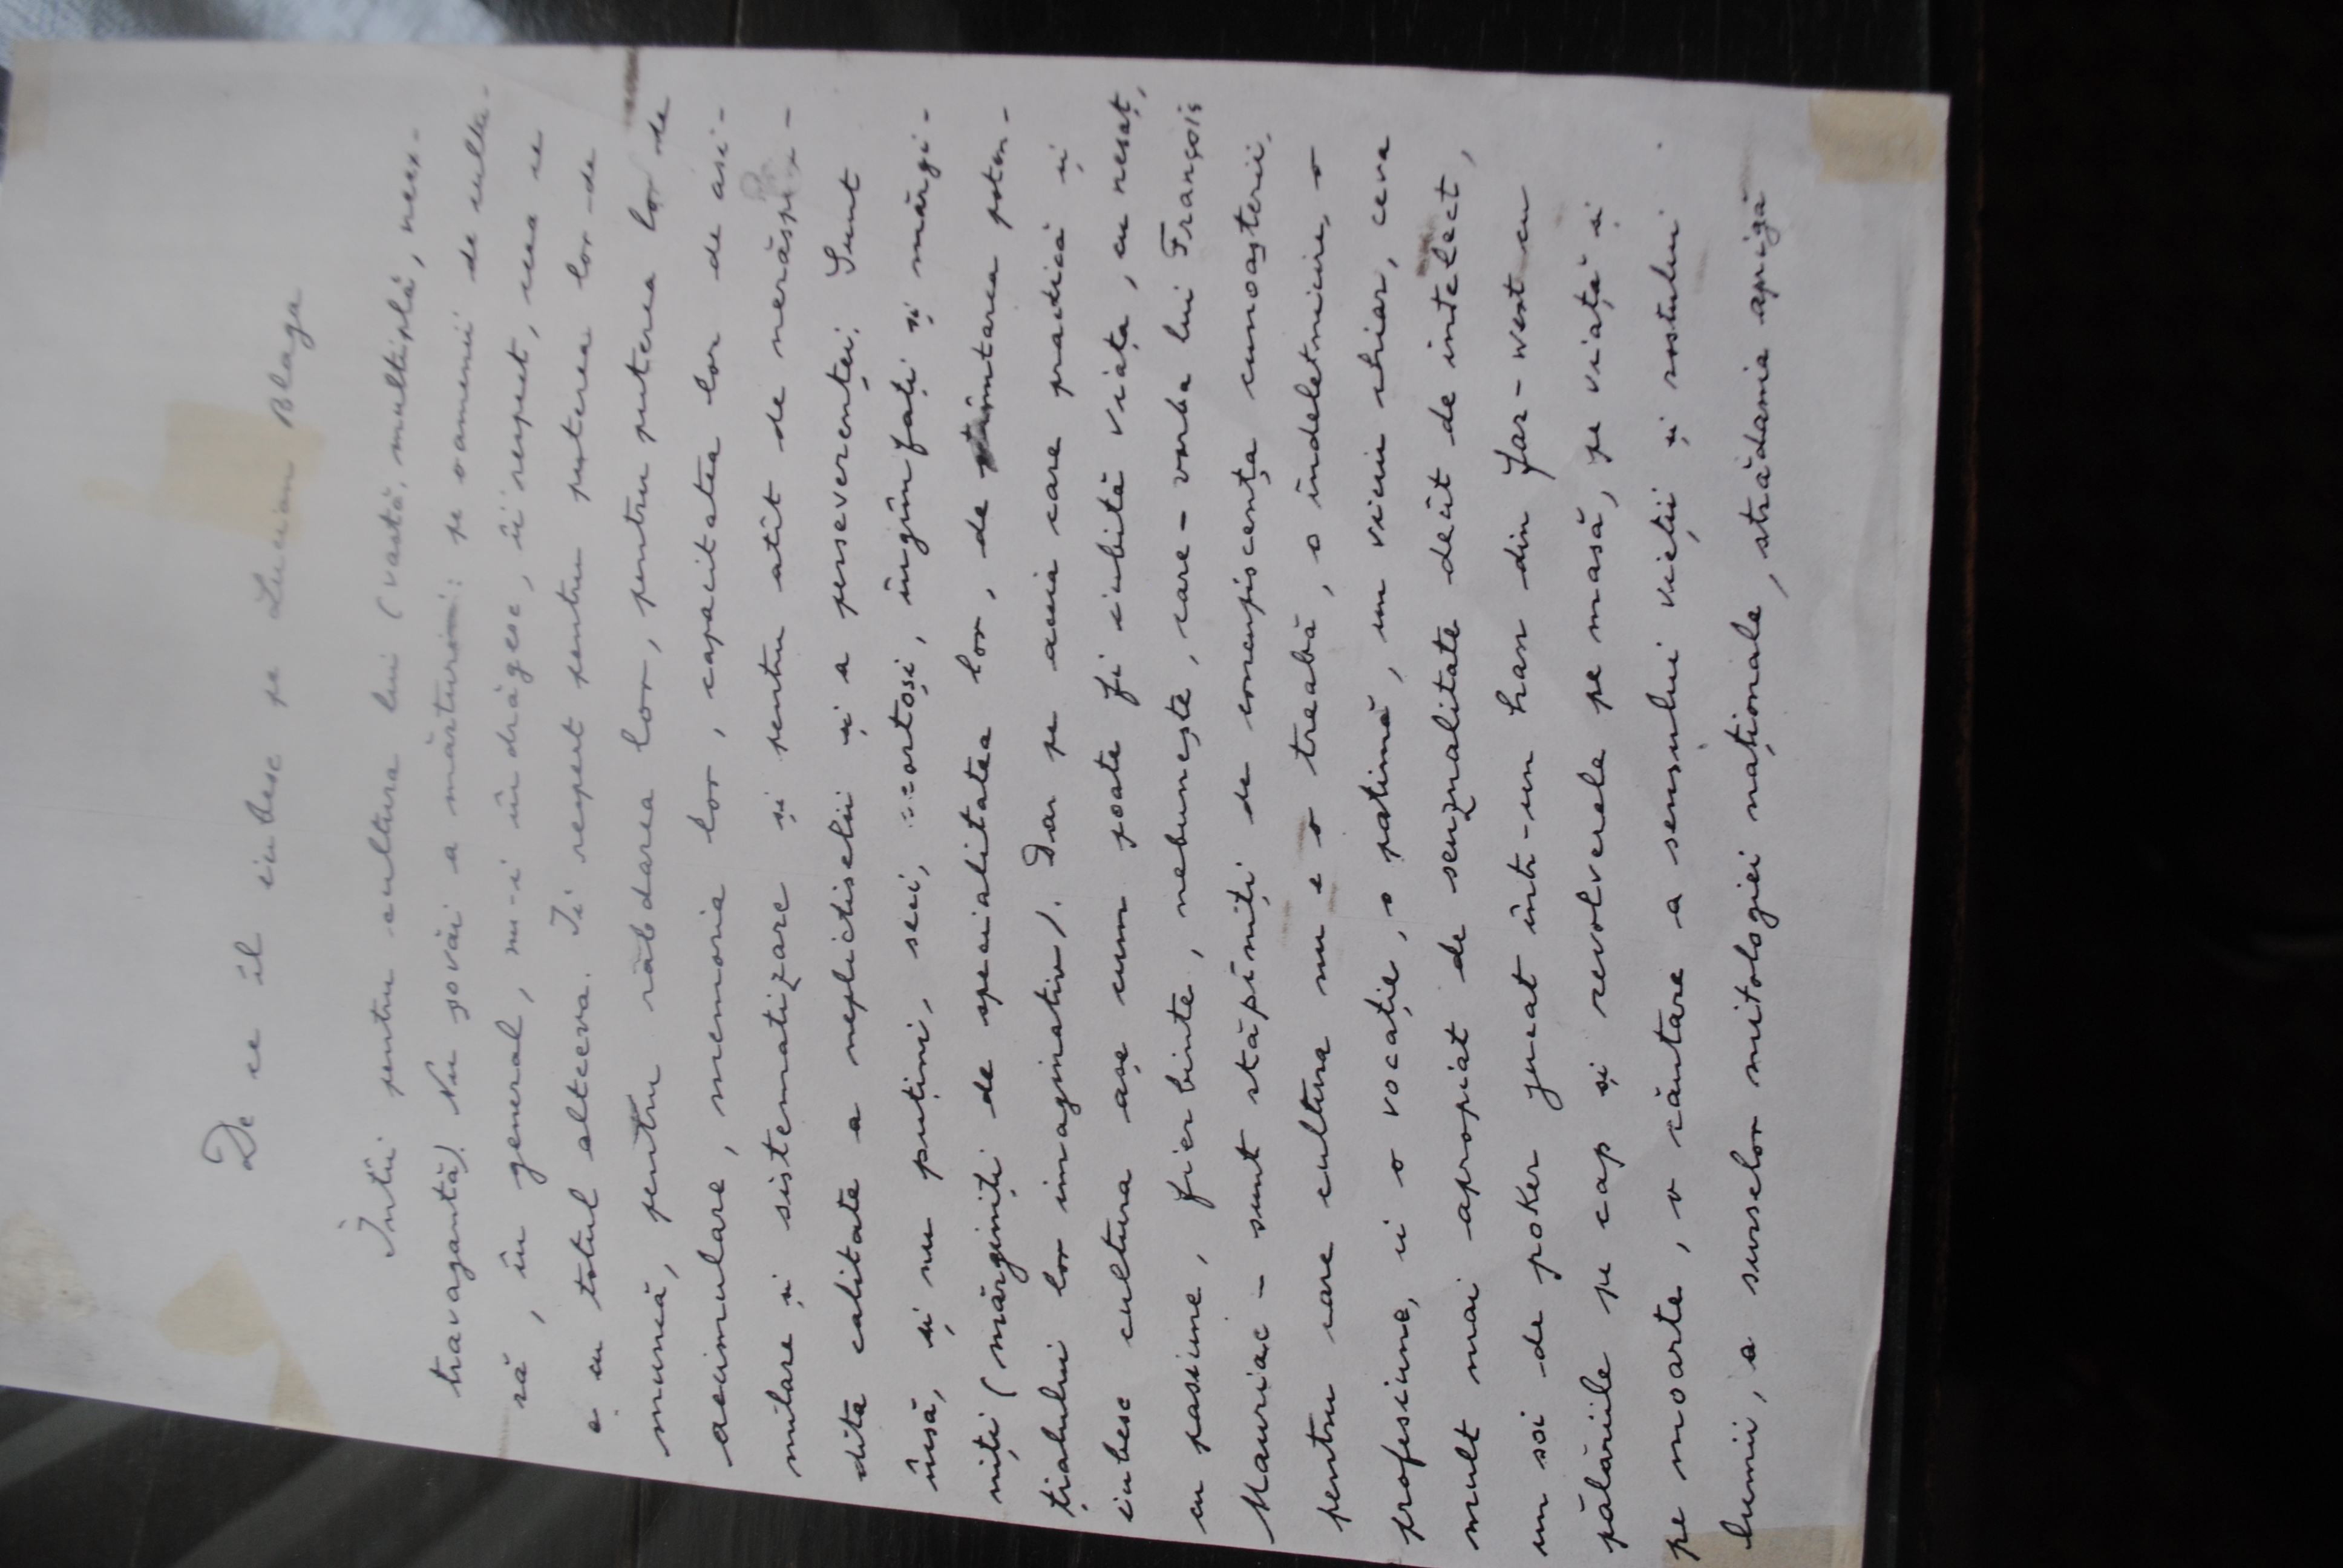 De ce îl iubesc pe Lucian Blaga
Întîi pentru cultura lui (vastă, multiplă, neex-
travagantă). Nu șovăi a mărturisi: pe oamenii de cultu-
ră, în general, nu-i îndrăgesc, îi respect, ceea ce
e cu totul altceva. Îi respect pentru puterea lor de
muncă, pentru răbdarea lor, pentru puterea lor de
acumulare, memoria lor, capacitatea lor de asi-
milare și sistematizare și pentru atît de nerăspîn-
dita calitate a neplictiselii și a perseverenței. Sunt
însă, și nu puțini, seci, scorțoși, îngîmfați și mărgi-
niți (mărginiți de specialitatea lor, de poten-
țialului lor imaginativ). Dar pe aceia care practică și
iubesc cultura așe cum poate fi iubită viața, cu nesaț,
cu pasiune, fierbinte, nebunește, care - vorba lui François
Mauriac - sunt stăpîniți de concupiscența cunoașterii,
pentru care cultura nu e o treabă, o îndeletnicire, o
profesiune, ci o vocație, o patimă, un viciu chiar, ceva
mult mai apropiat de senzualitate decît de intelect,
un soi de poker jucat într-un han din far-west cu
pălăriile pe cap și revolverele pe masă, pe viață și
pe moarte, o căutare a sensului vieții și rostului
lumii, a surselor mitologiei naționale, strădania aprigă